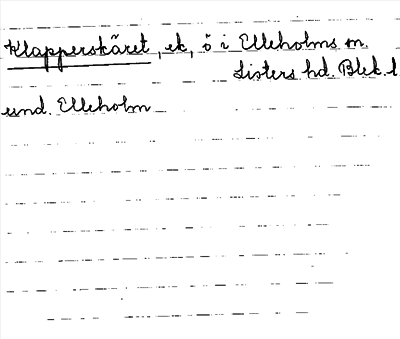 Klapperskäret, ek, ö i Elleholms sn.
Listers hd. Blek. l
und. Elleholm